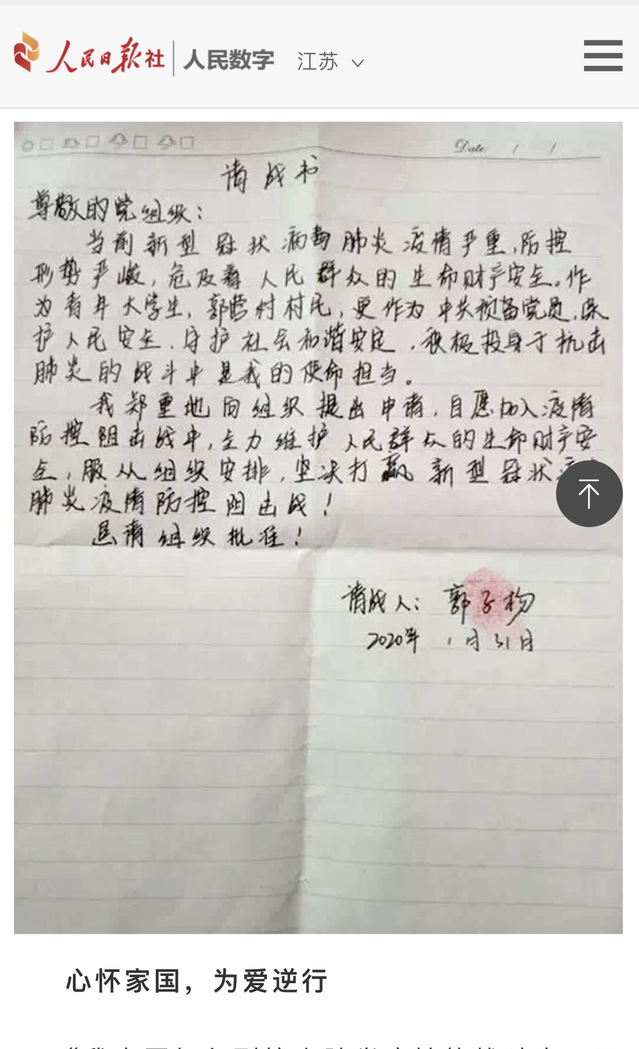 人民日报社 人民数字 江苏
Date: / /
请战书
尊敬的党组织：
当前新型冠状病毒肺炎疫情严重，防控
形势严峻，危及着人民群众的生命财产安全。作
为青年大学生，郭营村村民，更作为中共预备党员，保
护人民安全、守护社会和谐安定，积极投身于抗击
肺炎的战斗中是我的使命担当。
我郑重地向组织提出申请，自愿加入疫情
防控阻击战中，全力维护人民群众的生命财产安
全，服从组织安排，坚决打赢新型冠状
肺炎疫情防控阻击战！
恳请组织批准！
请战人：郭子杨
2020年1月31日
心怀家国，为爱逆行